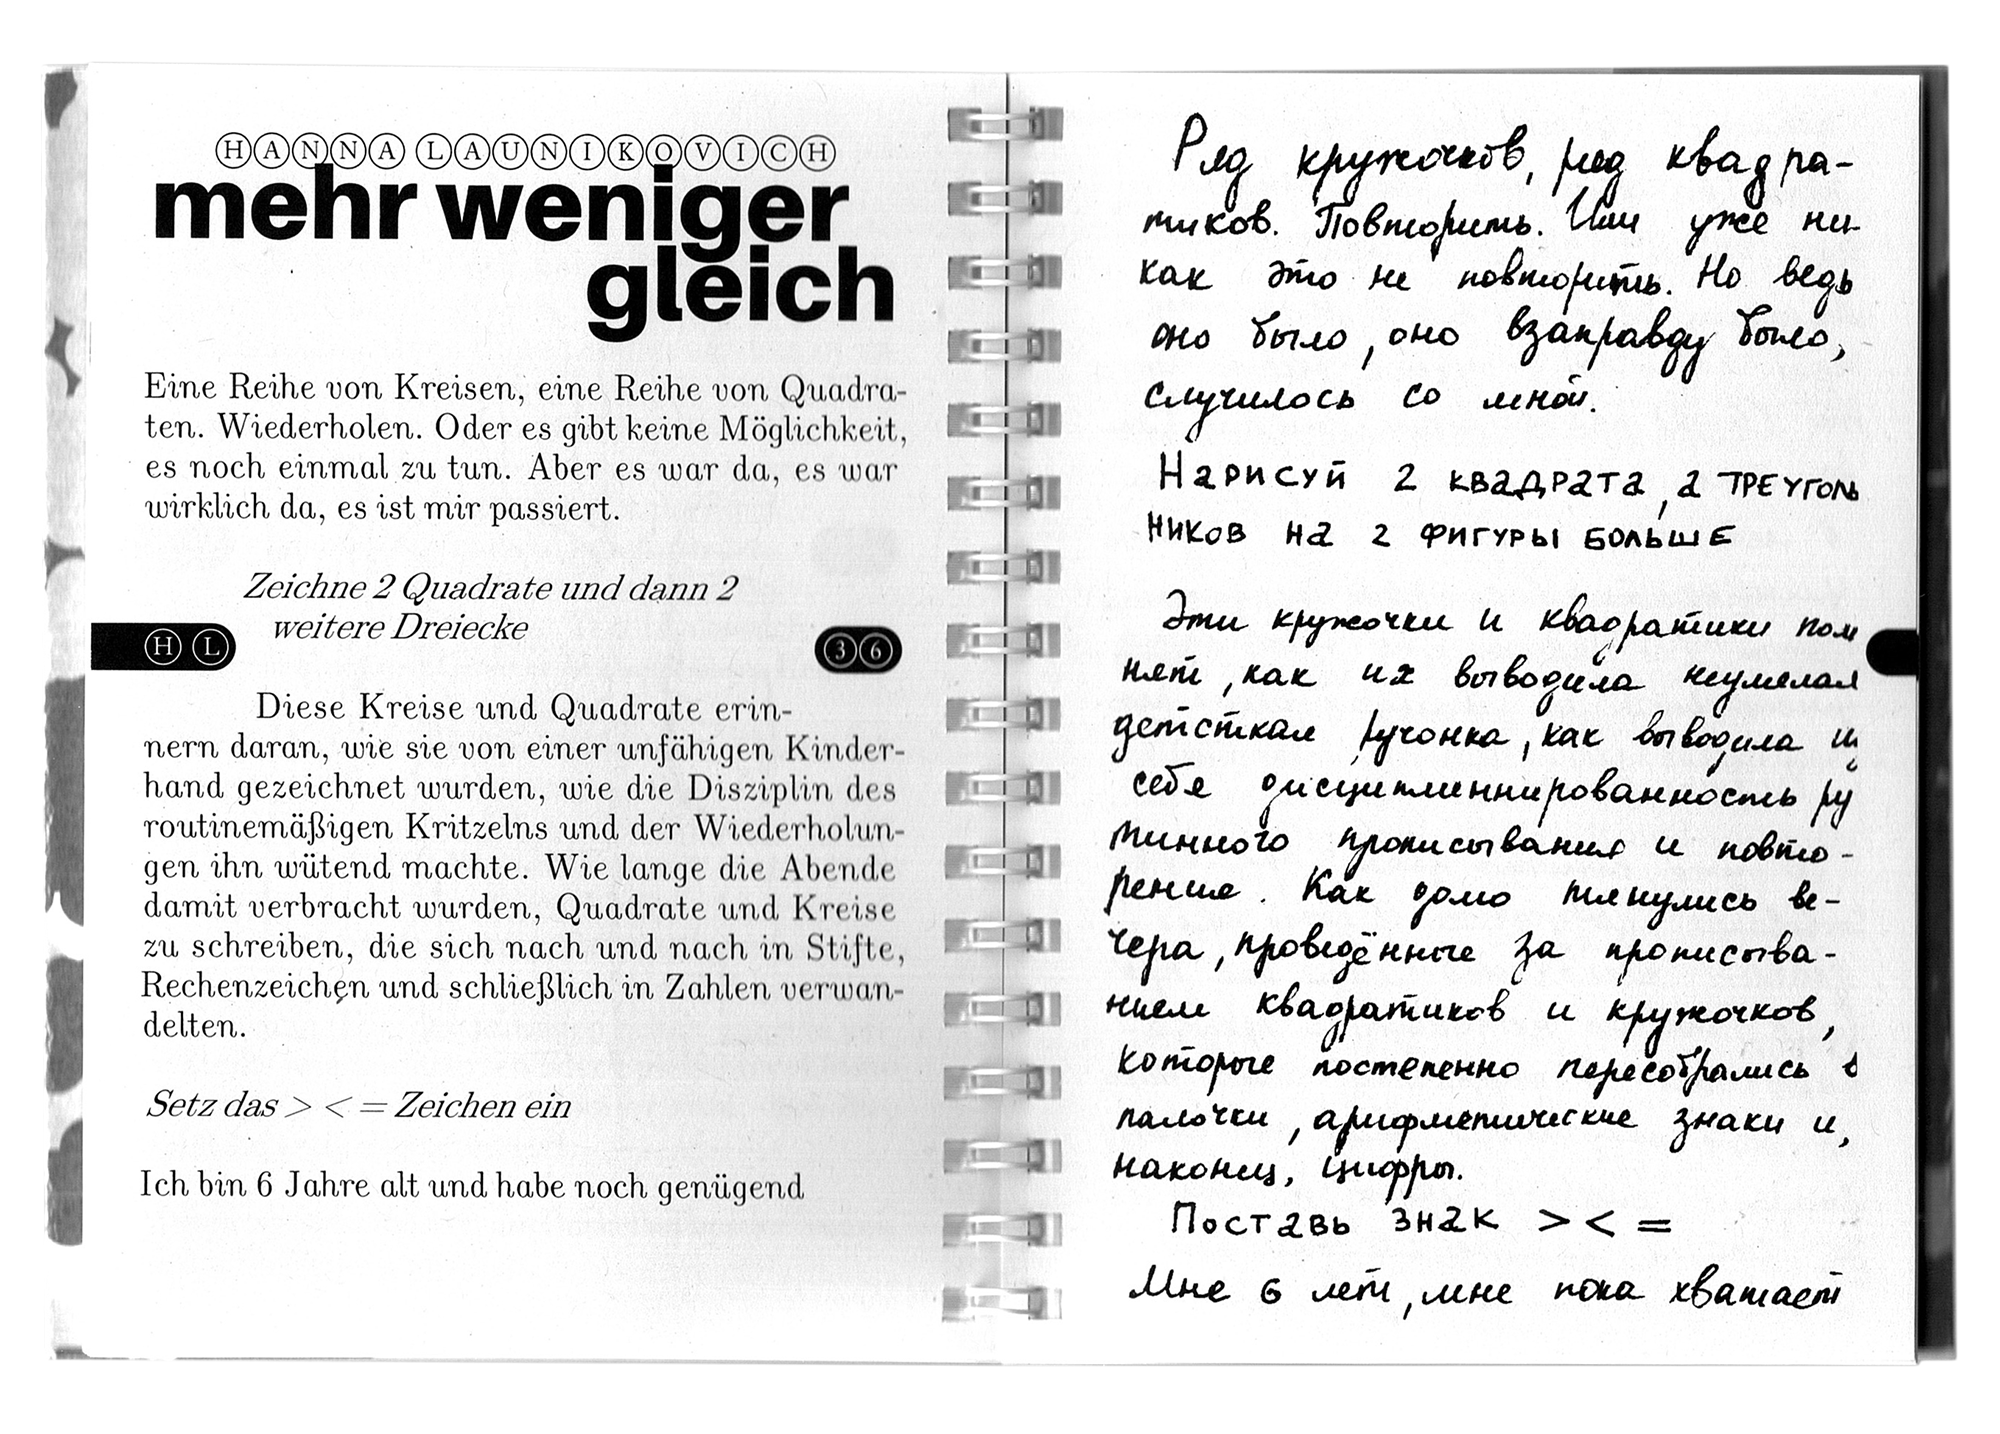 HANNA LAUNIKOVICH
mehr weniger
gleich
Eine Reihe von Kreisen, eine Reihe von Quadra-
ten. Wiederholen. Oder es gibt keine Möglichkeit,
es noch einmal zu tun. Aber es war da, es war
wirklich da, es ist mir passiert.
Zeichne 2 Quadrate und dann 2
weitere Dreiecke
HL
36
Diese Kreise und Quadrate erin-
nern daran, wie sie von einer unfähigen Kinder-
hand gezeichnet wurden, wie die Disziplin des
routinemäßigen Kritzelns und der Wiederholun-
gen ihn wütend machte. Wie lange die Abende
damit verbracht wurden, Quadrate und Kreise
zu schreiben, die sich nach und nach in Stifte,
Rechenzeichen und schließlich in Zahlen verwan-
delten.
Setz das > < = Zeichen ein
Ich bin 6 Jahre alt und habe noch genügend
Ряд кружочков, ряд квадра-
тиков. Повторить. Или уже ни-
как это не повторить. Но ведь
оно было, оно взаправду было,
случилось со мной.
НАРИСУЙ 2 КВАДРАТА, а ТРЕУГОЛЬ
НИКОВ НА 2 ФИГУРЫ БОЛЬШЕ
Эти кружочки и квадратики пом
нят, как их выводила неумелая
детсткая ручонка, как выводила из
себя дисциплиннированность ру
тинного прописывания и повто-
рения. Как долго тянулись ве-
чера, проведённые за прописыва-
нием квадратиков и кружочков,
которые постепенно пересобрались в
палочки, арифметические знаки и,
наконец, цифры.
ПОСТАВЬ ЗНАК > < =
Мне 6 лет, мне пока хватает